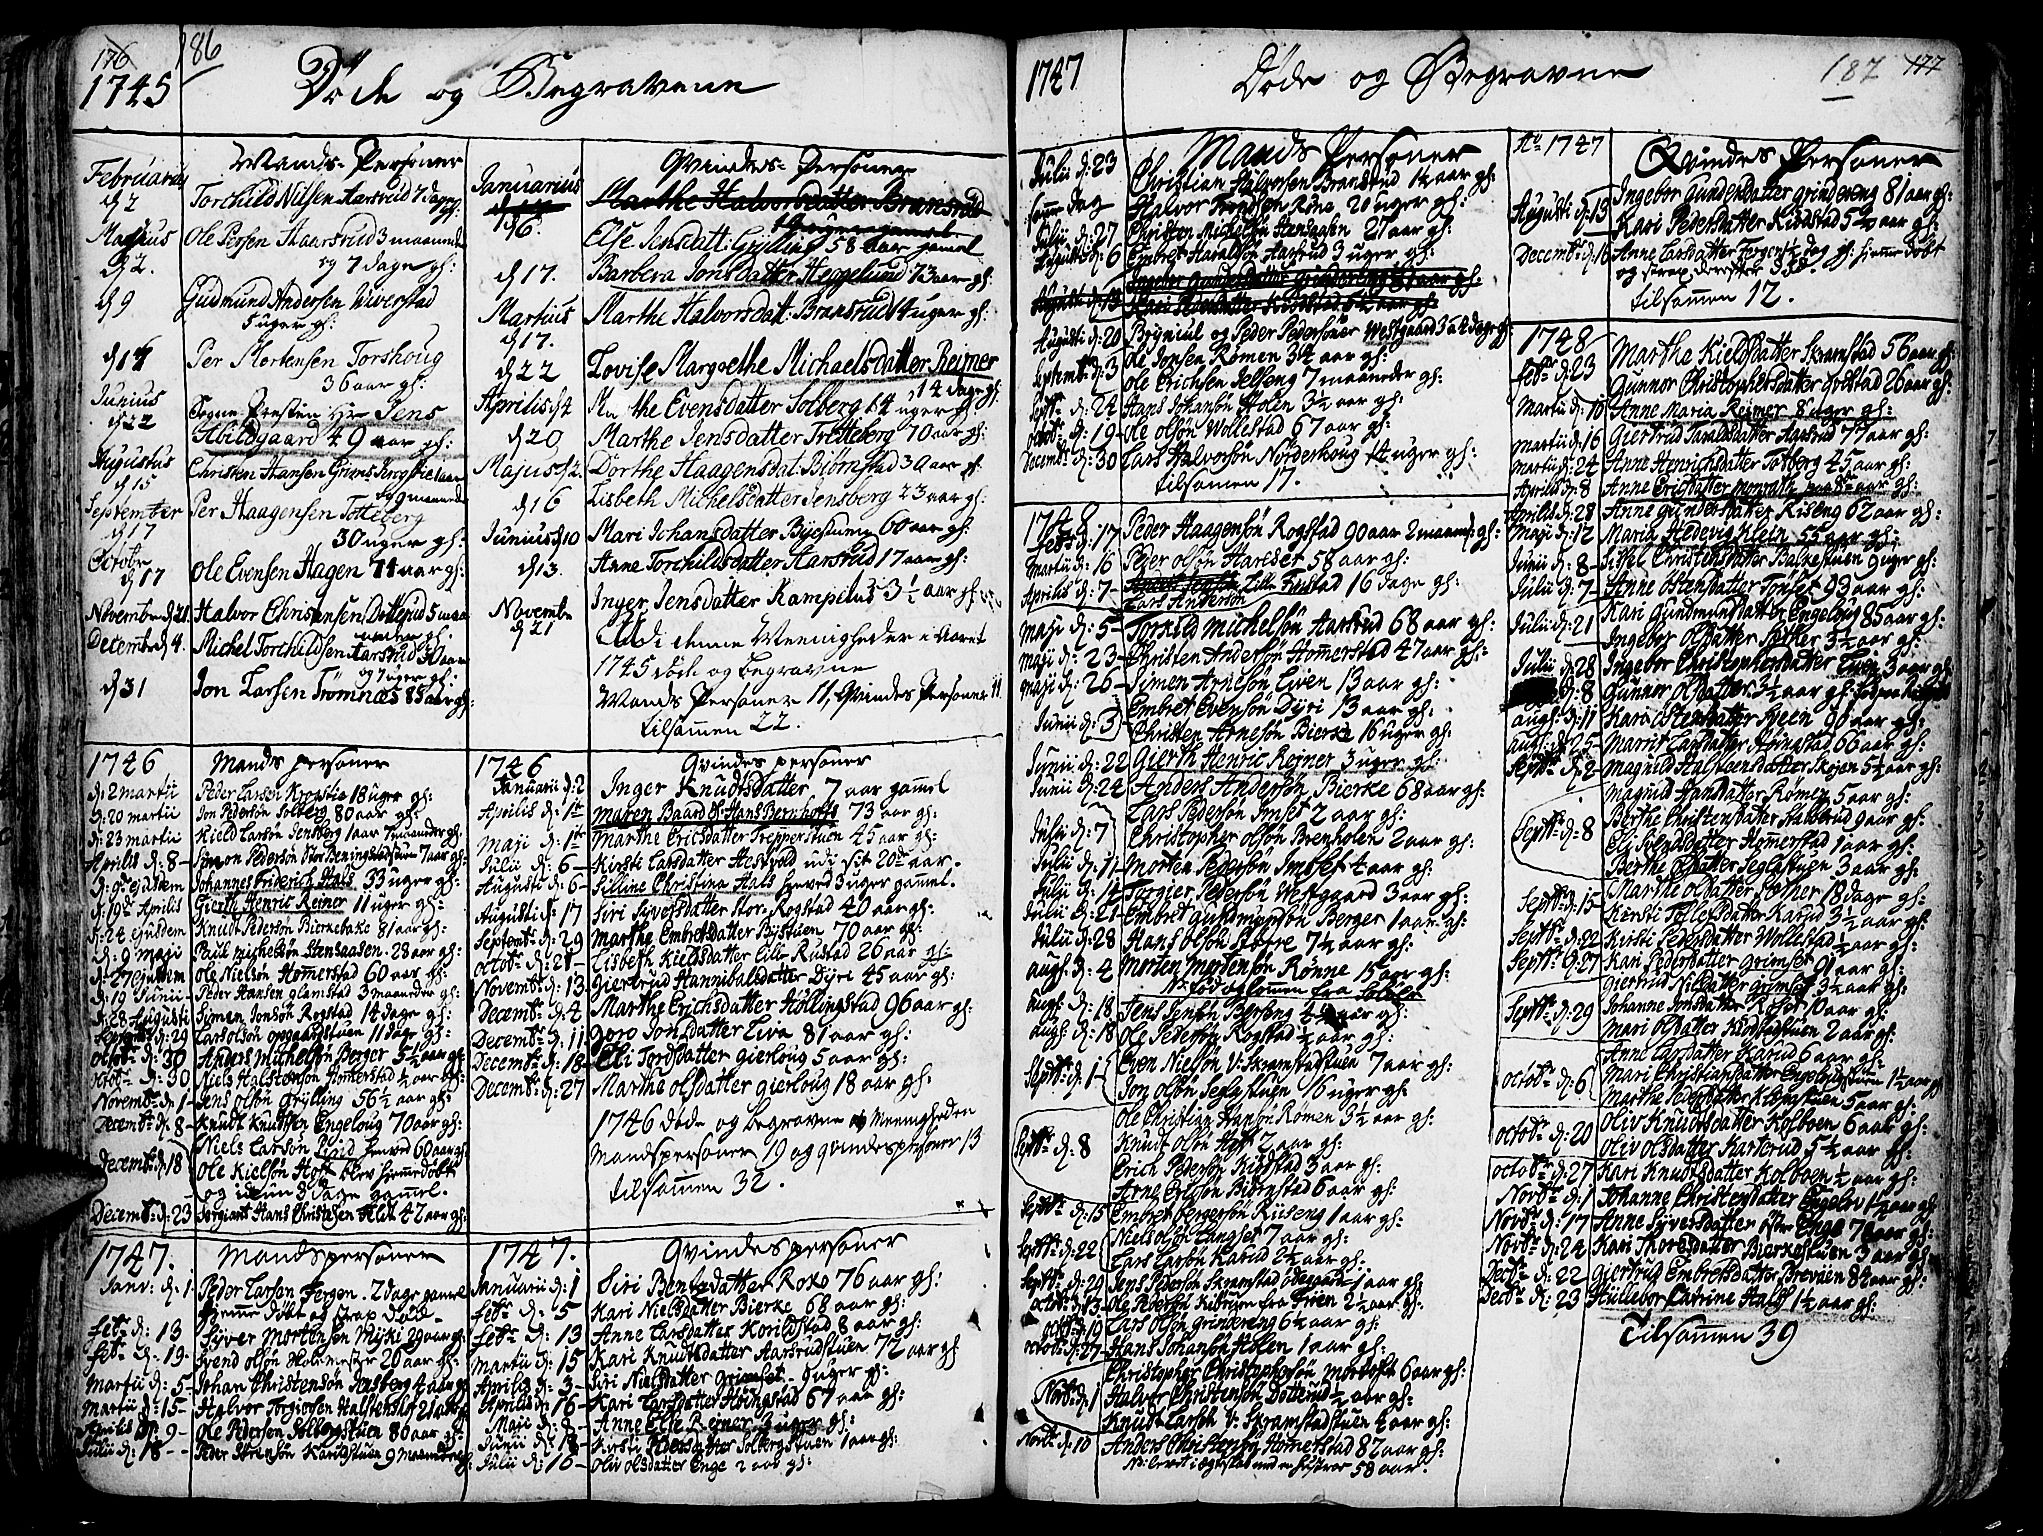 176 186
1745 Døde og Begravene
Mands-Personer
Februarii
d 2 Torchild Nilsen Aarsrud 7 dage gl:
Martius
d 2. Ole Persen Haarsrud 3 maaneder
og 7 dage gl:
d 9 Gudmund Andersen
5 uger gl:
Per Mortensen Torshoug
36 aar gl:
Junius
d 22 Sogne Præsten Hr Jens
Abildgaard 49 aar gl:
Augustus
d 15 Christen Hansen
og 9 maaneder
September
d 17 Per Haagensen Totteberg
30 uger gl:
Octobr
d 17 Ole Evensen Hagen 71 aar gl:
November d 21 Halvor Christensen Dotterud 5 maa
neder gl:
December d 4. Michel Torchildsen Aarsrud 30 aar
og 7 uger gl:
d 31 Jon Larsen Trømnæs 85 aar gl:
Qvindes-Personer
Januarius
Marthe Halvorsdatter Bransrud
d 6. Else Jensdatt: Grylling 58 aar gamel
d 17. Barbera Jonsdatter Heggelund 73 aar gl:
Martius
d 17. Marthe Halvorsdatt: Bransrud 14 uger gl:
d 22 Lovise Margrethe Michaelsdatter Reimer
14 dage gl:
Aprilis d 4 Marthe Evensdatter Solberg 14 uger gl:
d 20 Marthe Jensdatter Tretteberg 70 aar gl:
Majus d 2. Dorthe Haagensdat: Biørnstad 30 aar gl:
d 16 Lisbeth Michelsdatter Jensberg 23 aar gl:
Junius d 10 Mari Johansdatter 60 aar gl:
d 13. Anne Torchildsdatter Aarsrud 17 aar gl:
Novembr
d 21 Inger Jensdatter Rampelud 3½ aar gl:
Udi denne Menigheder i Aaret
1745 døde og begravne
Mands Personer 11, Qvindes Personer 11
tilsamen 22.
1746 Mands personer
d: 2 martii Peder Larsen Krogstie 18 uger gl:
d: 20 martii Jon Pedersøn Solberg 80 aar gl:
d: 23 martii Kield Larsøn Jensberg 1 aar 7 maaneder gl:
Aprilis d: 8 - Simon Pedersøn 7 aar gl:
d: 9de ejusdem Johannes Friderich Hals 33 uger gl:
d: 19de Aprilis Gierth Henric Reimer 11 uger gl:
d: 24 ejusdem Knud Pedersøn Bierkebake 81 aar gl:
d: 9 maji Paul michelsøn Stensaasen. 28 aar gl:
d: 27 ejusdem Ole Nielsøn Homerstad 60 aar gl:
d: 19 Junii - Peder Hansen glamstad 3 maaneder gl:
d: 28 Augusti Simen Jonsøn Rogstad 14 dage gl:
Septembr d: 29 Lars olsøn opgaardstuen 11 dage gl:
octobr d: 30 Anders Michelsøn Berger 5½ aar gl:
octobr d: 30 Niels Halstensøn Homerstad ½ aar gl:
Novembr d: 1 - Jens olsøn Grylling 56½ aar gl:
Decembr d: 8 - Knudt Knudtsen Engeloug 70 aar gl:
Decembr d: 18 Niels Larsøn Lund henved 60 aar gl:
Ole Kielsøn Hoft blev hiemedøbt
og idem 8 dage gamel.
Decembr: d: 23 Sergiant Hans Christensen Feldt 42 aar gl:
1746 Qvindes personer
Januarii d: 2 Inger Knudtsdatter 7 aar gammel
Aprilis d: 1te maren Baard Sl: Hans Bernholts 73 aar gl:
maji d: 1te marthe Ericsdatter Trepperstuen 45 aar gl:
Julii d: 6 - Kirsti Larsdatter Hestvold udi sit 20de aar.
Augusti d: 6 - Silline Christina Hals henved 3 uger gammel.
Augusti d: 17 Siri Syversdatter Stor-Rogstad 40 aar gl:
Septembr d: 29 Marthe Embretsdatter Bystien 70 aar gl:
octobr d: 21 - Lisbeth Kieldsdatter Lille Rustad 26 aar gl:
Novembr d: 13 Giertrud Hannibalsdatter Dyri 45 aar gl:
Decembr d: 4 Marthe Erichsdatter Hollingstad 96 aar gl:
Decembr d: 11 Goro Jonsdatter Liva 81 aar gl:
Decembr d: 18 Eli Tordsdatter gierloug 5 aar gl:
Decembr d: 27 Marthe olsdatter gierloug 18 aar gl:
1746 døde og begravne i Menigheden
Mandspersoner 19 og qvindespersoner 13
tilsammen 32.
1747. Mandspersoner
Janv: d: 1 Peder Larsen Jergen. 2 dage gamel
hjemme døbt og strax død.
febr d: 13 Syver Mortensen Myki 29 aar gl:
febr d: 19 - Svend olsøn Holemester 26 aar gl:
Martii d: 5 - Johan Christensøn Jensberg 4 aar gl:
Martii d: 15 - Halvor Torgiersen Halstenshof
Aprilis d: 9 - Ole Pedersen Solbergstuen 80 aar gl:
Julii d: 18 - Peder Sørensøn Karudstuen 9 maaneder gl:
1747. Qvindespersoner
Januarii d: 1 Siri Bentsdatter Roko 76 aar gl:
febr d: 5 Kari Nielsdatter Bierke 68 aar gl:
febr d: 13 Anne Larsdatter Korilstad 8 aar gl:
Martii d: 15 Kari Knudtsdatter Aarsrudstuen 72 aar gl
Aprilis d: 3 - Siri Nielsdatter Grimset - 9 uger gl:
Aprilis d: 16 - Kari Larsdatter Honingstad 67 aar gl:
Maji d: Anne Else Reimer 3 uger gl:
Junii d: 18 - Kirsti Pedersdatter Solbergstuen 1 aar gl:
Julii d: 16 - Oliv olsdatter Enge 2 aar gl:
1747 Døde og Begravne 187 177
Mands Personer
Julii d: 23 Christian Halvorsen Bransrud 1½ aar gl:
samme dag Halvor Trondsen Røne 20 uger gl:
Julii d: 27 Christen Michelsøn Hansgaben 27 aar gl:
Augusti d: 6 Embret Haraldsøn Aasrud 3 uger gl:
Augusti d: 13 Ingebor Gundersdatter Grindereng 81 aar gl:
Kari Pedersdatter Kiidstad 5½ aar gl:
Augusti d: 20 Brynjul og Peder Pedersøner Westgaard 3 a 4 dage gl:
Septembr d: 3 Ole Jonsen Romen 3½ aar gl:
Ole Erichsen Jelseng 7 maaneder gl:
Septbr d: 24 Hans Johansøn Holen 3½ aar gl:
octobr d: 19 - Ole olsøn Wollestad 67 aar gl:
Decembr d: 30 Lars Halvorsøn Norderhoug 14 uger gl:
tilsamen 17.
1748
febr d: 17 Peder Haagensøn Rogstad 90 aar 2 maaneder gl:
Martii d: 16 Peder olsøn Harelser 58 aar gl:
Aprilis d: 7 - Lille Frustad 16 dage gl:
Lars Anderson
maji d: 5 - Torkild Michelsøn Aarsrud 68 aar gl:
maji d: 23 - Christen Andersøn Homerstad 47 aar gl:
maji d: 26 - Simen Arnesøn Even 13 aar gl:
Junii d: 3 Embret Evensøn Dyri 13 aar gl:
Christen Arnesøn Bierke 16 uger gl:
Junii d: 22 Gierth Henric Reimer 3 uger gl:
Junii d: 24 Anders Andersøn Bierke 68 aar gl:
Julii d: 7 Lars Pedersøn Imset 2 aar gl:
Christopher olsøn Brenholen 2 aar gl:
Julii d: 11 - Morten Pedersøn Imset 4 aar gl:
Julii d: 14 Torgier Pedersøn Westgaard 3 aar gl:
Julii d: 21 - Embret Gundmorsøn Berger 1 aar gl:
Julii d: 28 Hans olsøn Sørre 7½ aar gl:
augl: d: 4 Morten Mortensøn Rønne 15 aar gl:
augl: d: 18 Jens Jensøn Berseng gl:
augl: d: 18 Ole Pedersøn Rogstad ½ aar gl:
Septbr d: 1 Even Nielsøn V: Skramstadstuen 7 aar gl:
Jon olsøn Seglstuen 16 uger gl:
Septbr d: 8 Ole Christian Hansøn Romen 3½ aar gl:
Knudt olsøn Hoft 2 aar gl:
Erich Pedersøn Kiidstad 3 aar gl:
Arne Ericsøn Biørnstad 6 aar gl:
Septbr d: 15 Embret Bergersøn Riiseng 1 aar gl:
Septbr d: 22 Niels olsøn Langset 7 aar gl:
Lars Larsøn Karud 2½ aar gl:
Septbr d: 29 Jens Pedersøn Skramstadødegaard 1 aar gl:
octobr d: 13 Ole Pedersøn 2½ aar gl:
octobr d: 19 Lars olsøn grindereng 6½ aar gl:
octobr d: 27 Hans Johansøn Holen 1 aar gl:
Novbr d: 1 Christopher Christophersøn Mortoft 6 aar gl:
Halvor Christensøn Dotterud ½ aar gl:
Knudt Larsøn V: Skramstadstuen ½ aar gl:
Novbr d: 10 Anders Christensøn Homerstad 82 aar gl:
NB: levet i ægteskab med en hustroe 58 aar.
Ao 1747 Qvindes Personer
Augusti d: 13 Ingebor Gundersdatter Grindereng 81 aar gl:
Kari Pedersdatter Kiidstad 5½ aar gl:
Decembr d: 16 Anne Larsdatter Jergen ½ dag gl: hiemedøbt
og strax derefter død.
tilsamen 12.
1748 Marthe Kieldsdatter Skramstad 56 aar gl:
febr d: 23 Gunnor Christophersdatter 26 aar gl:
Martii d: 16 Anne Maria Reimer 8 uger gl:
martii d: 16 Giertrud Taraldsdatter Aarsrud 77 aar gl:
martii d: 24 Anne Henrichsdatter Totberg 45 aar gl:
Aprilis d: 8 Anne Ericsdatter aar gl:
Aprilis d: 28 Anne Gundersdatter Riseng 62 aar gl:
Maji d: 12 Maria Hedevig Klein 55 aar gl:
Junii d: 8 - Sissel Christensdatter Balkestuen 9 uger gl:
Julii d: 7 - Anne Ostensdatter Tonset 93 aar gl:
Julii d: 21 Kari Gundmunsdatter Engeloug 85 aar gl:
Ingebor olsdatter Sother 3½ aar gl:
Julii d: 28 Ingebor Christophersdatter Even 3 aar gl:
d: 8 Gunnor olsdatter 3½ aar gl:
augl: d: 11 Kari Ostensdatter Sveen 90 aar gl:
augl: d: 25 - Marrit Larsdatter Honingstad 66 aar gl:
Septbr d: 2 Magnild Halstensdatter Skojen 5½ aar gl:
Magnild Hansdatter Romen 5 aar gl:
Septbr d: 8 Berthe Christensdatter Stafsbrud 9 aar gl:
Eli Svensdatter Homerstad 1 aar gl:
Berthe olsdatter Seglstuen 3 aar gl:
Marthe olsdatter Sother 18 dage gl:
Septbr d: 15 - Kirsti Tollefsdatter Karud 3½ aar gl:
Septbr d: 22 Kirsti Pedersdatter Wollestad ½ aar gl:
Septbr d: 27 Kari Pedersdatter grimset 9 aar gl:
Septbr d: 29 Giertrud Nilsdatter grimset 3½ aar gl:
Johanne Jensdatter Rosset 10 aar gl:
Mari olsdatter Kiidstadstuen 2 aar gl:
octobr d: 6 Anne Larsdatter Karud 6 aar gl:
Mari Christiansdatter Engelougstuen 1½ aar gl
Marthe Pedersdatter Kiidstuen 5 aar gl:
octobr d: 20 Oliv Knudtsdatter Kolboen 6 aar gl:
Oliv olsdatter Karterud 5½ aar gl:
octobr d: 27 Kari Knudtsdatter Kolboen ½ aar gl:
Novbr d: 1 Johanne Christensdatter Engelov 1½ aar gl:
Novbr d: 17 Anne Syversdatter Enge 76 aar gl:
Novbr d: 24 Kari Thoresdatter Bierkestuen 3 aar gl:
Decbr d: 22 Giertrud Embretsdatter Breviien 82 aar gl:
Decbr d: 23 Hallebor Catrine Hals 1½ aar gl:
Tilsammen 39